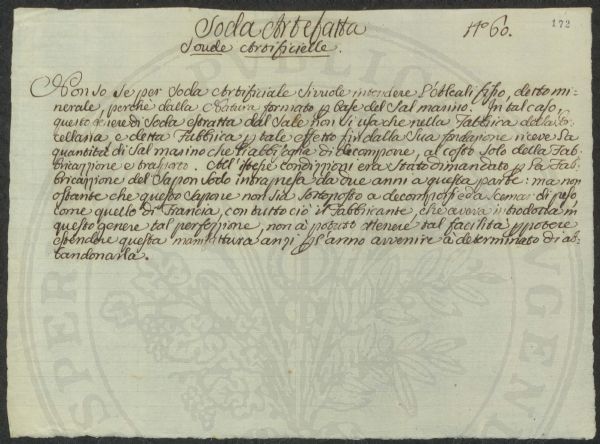 Soda Artefatta
N.o 60.
172
Soude Artificielle.
Non so se per Soda Artificiale si vuole intendere l'Alcali fisso, detto mi-
nerale, perchè dalla Natura formato p base del Sal marino. In tal caso,
questo genere di Soda estratta dal Sale non si usa che nella Fabbrica della Por
cellana e detta Fabbrica p tale effetto fin dalla sua fondazione riceve la
quantità di Sal marino che l'abbisogna di decomporre, al costo solo della Fab-
bricazione e trasporto. All'istesse condizioni era stato dimandato p la Fab-
bricazione del Sapon Sodo intrapresa da due anni a questa parte: ma non
ostante che questo Sapone non sia sottoposto a decomporsi ed a scemar di peso
come quello di Francia, con tutto ciò il Fabbricante, che aveva introdotta in
questo genere tal perfezione, non à potuto ottenere tal facilità p potere
estendere questa manifattura anzi p l'anno avvenire à determinato di ab-
bandonarla.
SPER
NGEND